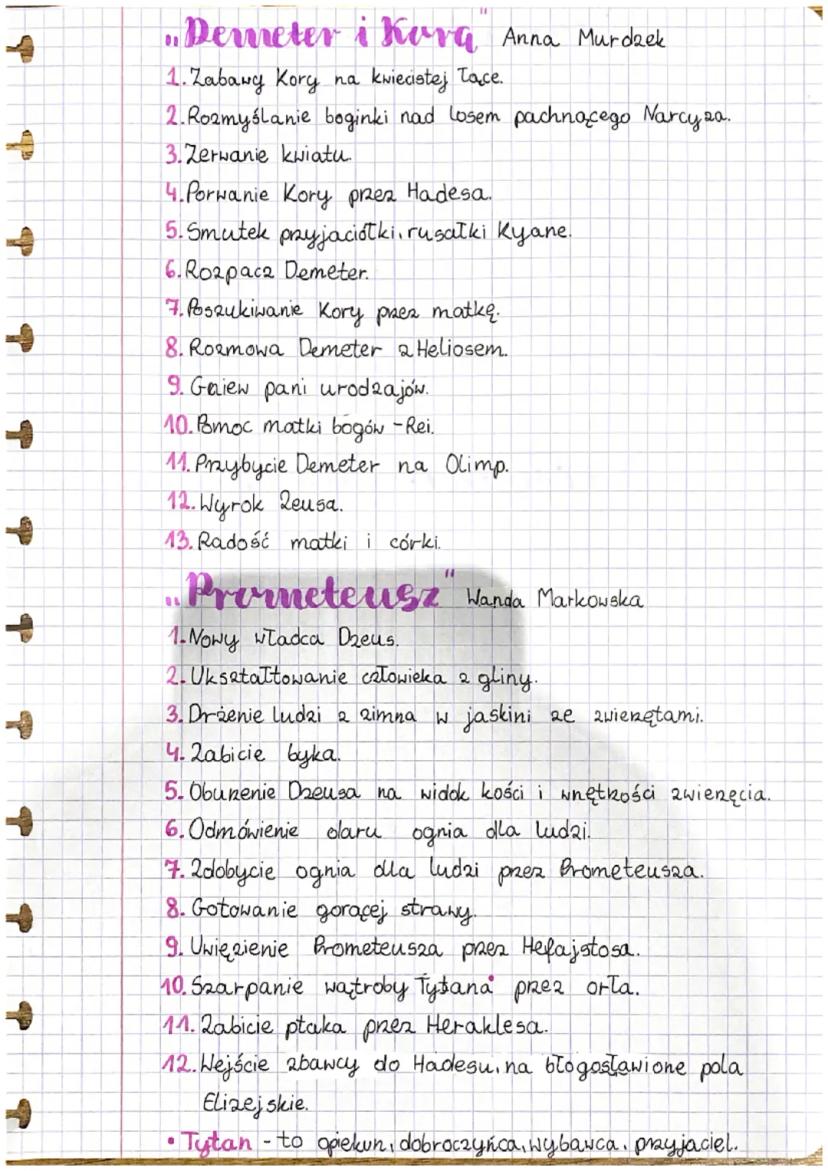 „Demeter i Kora" Anna Murdzek
1. Zabawy Kory na kwiecistej łące.
2. Rozmyślanie boginki nad losem pachnącego Narcyza.
3. Zerwanie kwiatu.
4. Porwanie Kory przez Hadesa.
5. Smutek przyjaciółki, rusałki Kyane.
6. Rozpacz Demeter.
7. Poszukiwanie Kory przez matkę.
8. Rozmowa Demeter z Heliosem.
9. Gniew pani urodzajów.
10. Pomoc matki bogów - Rei.
11. Przybycie Demeter na Olimp.
12. Wyrok Zeusa.
13. Radość matki i córki.
„Prometeusz" Wanda Markowska
1. Nowy władca Dzeus.
2. Ukształtowanie człowieka z gliny.
3. Drżenie ludzi z zimna w jaskini ze zwierzętami.
4. Zabicie byka.
5. Oburzenie Dzeusa na widok kości i wnętrzości zwierzęcia.
6. Odmówienie daru ognia dla ludzi.
7. Zdobycie ognia dla ludzi przez Prometeusza.
8. Gotowanie gorącej strawy.
9. Uwięzienie Prometeusza przez Hefajstosa.
10. Szarpanie wątroby Tytana• przez orła.
11. Zabicie ptaka przez Heraklesa.
12. Wejście zbawcy do Hadesu, na błogosławione pola
Elizejskie.
• Tytan - to opiekun, dobroczyńca, wybawca, przyjaciel.